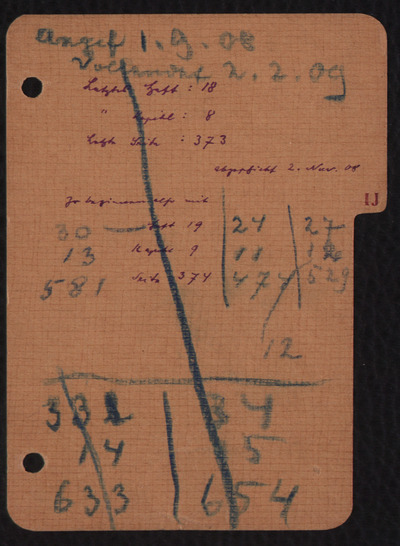 Angef 1. 9. 08
Vollendet 2. 2. 09
Letztes Heft : 18
" Kapitel : 8
Letzte Seite : 373
abgeschickt 2. Nov. 08
IJ
Zu beginnen also mit
Heft 19
Kapitel 9
Seite 374
30
13
581
24
11
474
27
12
529
12
332
14
633
34
15
654